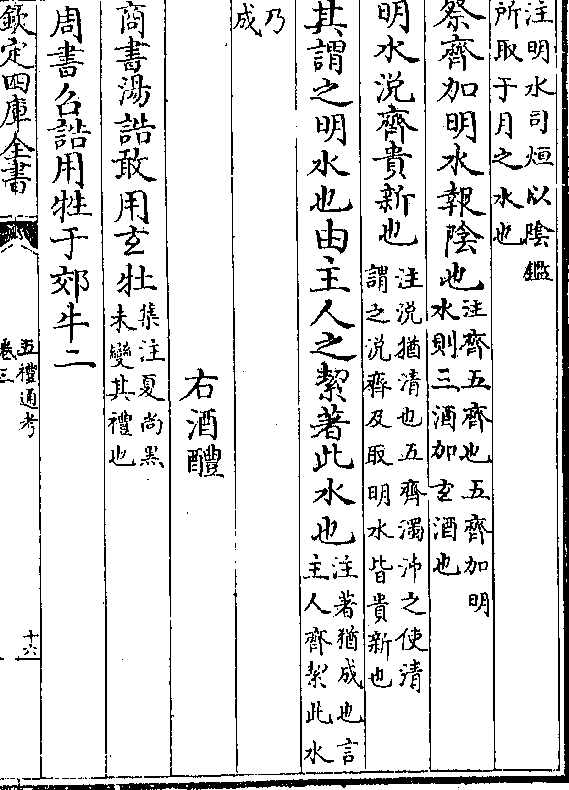 注明水司烜以陰鑑
所取于月之水也
祭齊加明水報陰也注齊五齊也五齊加明
水則三酒加玄酒也
明水説齊貴新也注説猶清也五齊濁泲之使清
謂之説齊及取明水皆貴新也
其謂之明水也由主人之絜著此水也注著猶成也言
主人齊絜此水
乃
成
右酒醴
商書湯誥敢用玄牡集注夏尚黑
未變其禮也
周書召誥用牲于郊牛二
欽定四庫全書
五禮通考
卷三
十六